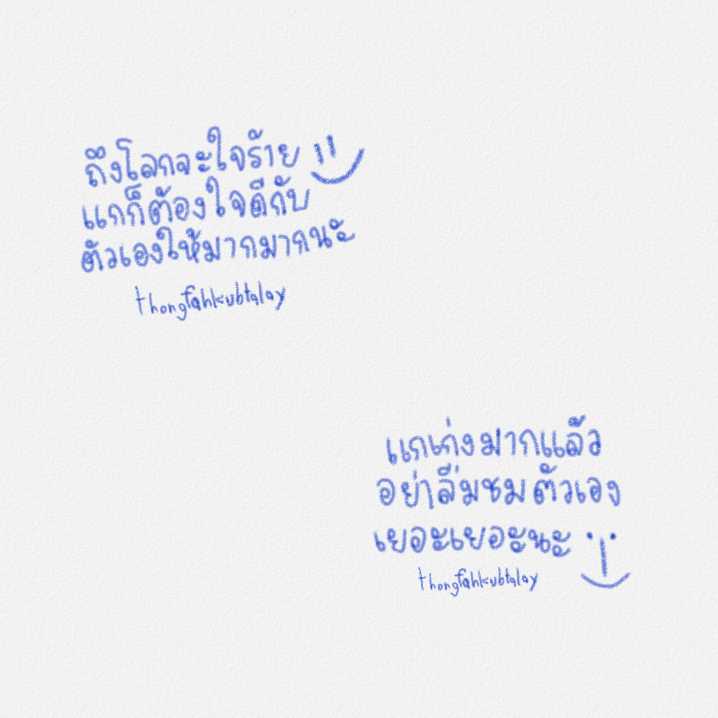 ถึงโลกจะใจร้าย
แกก็ต้องใจดีกับ
ตัวเองให้มากมากนะ
thongfahkubtalay
แกเก่งมากแล้ว
อย่าลืมชมตัวเอง
เยอะเยอะนะ
thongfahkubtalay